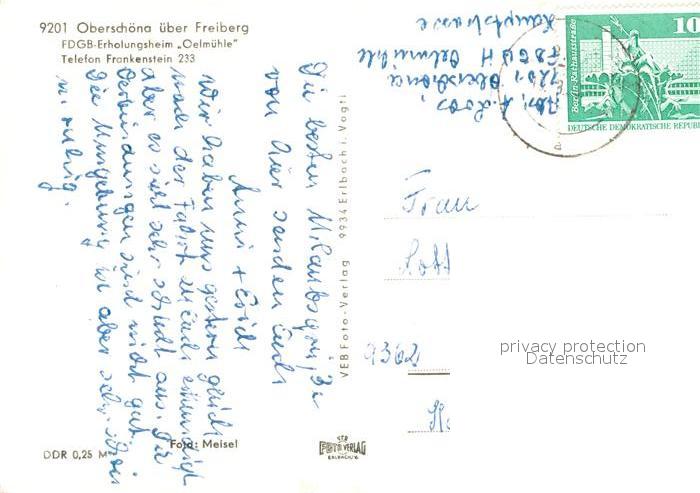 9201 Oberschöna über Freiberg
FDGB-Erholungsheim „Oelmühle"
Telefon Frankenstein 233
Die besten Urlaubsgrüße
von hier senden Euch
Anni + Erich
Wir haben uns gestern gleich
nach der Fahrt erkundigt
aber es sieht sehr schlecht aus. Die
Verbindungen sind nicht gut.
Die Umgebung ist aber sehr schön
u. ruhig.
DDR 0,25 M
Foto: Meisel
VEB Foto-Verlag 9934 Erlbach i. Vogtl
VEB
FOTO VERLAG
ERLBACH/V.
9201 Oberschöna
FDGB H Oelmühle
Hauptstrasse
10
Berlin-Rathausstraße
DEUTSCHE DEMOKRATISCHE REPUB
a
Frau
9362
privacy protection
Datenschutz